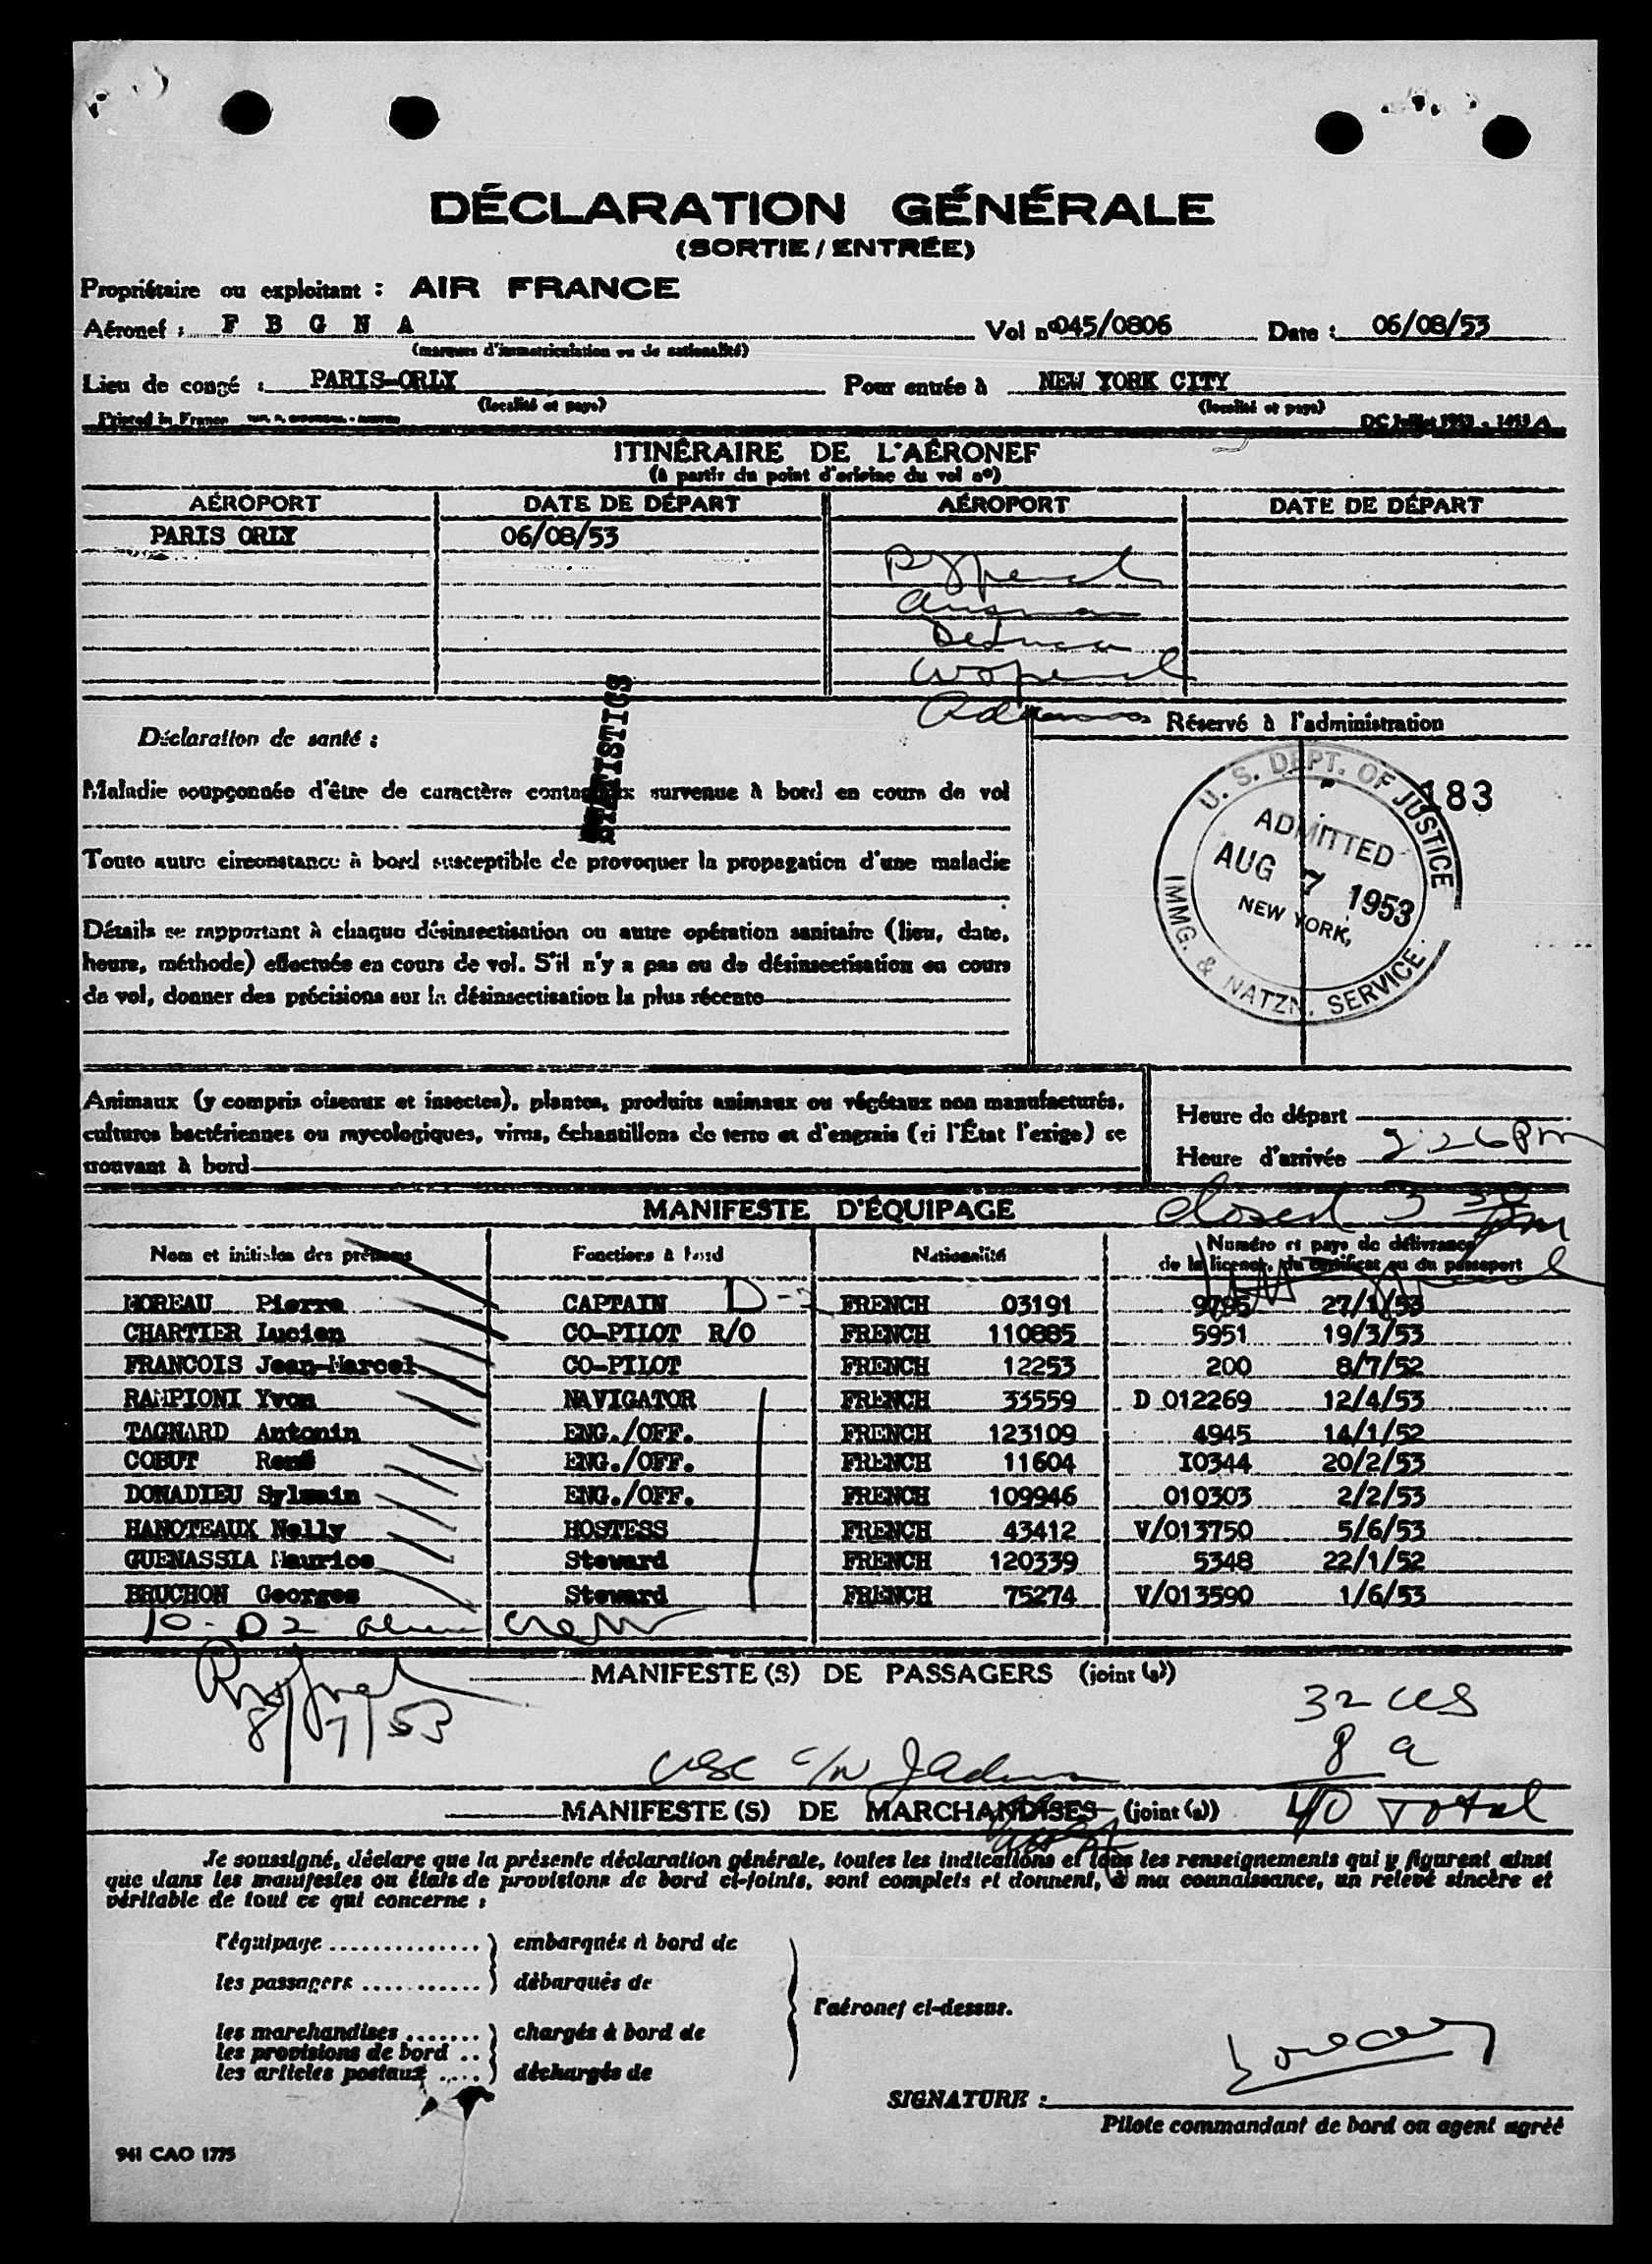 DÉCLARATION GÉNÉRALE
(SORTIE / ENTRÉE)
Propriétaire ou exploitant : AIR FRANCE
Aéronef : F B G N A Vol nº 045/0806 Date : 06/08/53
(marques d'immatriculation ou de nationalité)
Lieu de congé : PARIS-ORLY Pour entrée à NEW YORK CITY
(localité et pays) (localité et pays)
Printed in France
ITINÉRAIRE DE L'AÉRONEF
(à partir du point d'origine du vol nº)
AÉROPORT DATE DE DÉPART AÉROPORT DATE DE DÉPART
PARIS ORLY 06/08/53
STATISTICS
Déclaration de santé :
Réservé à l'administration
Maladie soupçonnée d'être de caractère contagieux survenue à bord en cours de vol
Toute autre circonstance à bord susceptible de provoquer la propagation d'une maladie
Détails se rapportant à chaque désinsectisation ou autre opération sanitaire (lieu, date,
heure, méthode) effectuée en cours de vol. S'il n'y a pas eu de désinsectisation en cours
de vol, donner des précisions sur la désinsectisation la plus récente
U. S. DEPT. OF JUSTICE
183
ADMITTED
AUG 7 1953
NEW YORK,
IMMG. & NATZN. SERVICE
Animaux (y compris oiseaux et insectes), plantes, produits animaux ou végétaux non manufacturés,
cultures bactériennes ou mycologiques, virus, échantillons de terre et d'engrais (si l'État l'exige) se
trouvant à bord
Heure de départ
Heure d'arrivée 2 26 Pm
MANIFESTE D'ÉQUIPAGE
Closed 3 30 pm
Nom et initiales des prénoms Fonctions à bord Nationalité Numéro et pays de délivrance
de la licence, du certificat ou du passeport
MOREAU Pierre CAPTAIN D- FRENCH 03191 9785 27/1/53
CHARTIER Lucien CO-PILOT R/O FRENCH 110885 5951 19/3/53
FRANCOIS Jean-Marcel CO-PILOT FRENCH 12253 200 8/7/52
RAMPIONI Yvon NAVIGATOR FRENCH 33559 D 012269 12/4/53
TAGNARD Antonin ENG./OFF. FRENCH 123109 4945 14/1/52
COBUT René ENG./OFF. FRENCH 11604 I0344 20/2/53
DONADIEU Sylvain ENG./OFF. FRENCH 109946 010303 2/2/53
HANOTEAUX Nelly HOSTESS FRENCH 43412 V/013750 5/6/53
GUENASSIA Maurice Steward FRENCH 120339 5348 22/1/52
BRUCHON Georges Steward FRENCH 75274 V/013590 1/6/53
10 - D2 alien crew
MANIFESTE (S) DE PASSAGERS (joint (s))
8/7/53
32 USC
8 a
40 Total
MANIFESTE (S) DE MARCHANDISES (joint (s))
Je soussigné, déclare que la présente déclaration générale, toutes les indications et tous les renseignements qui y figurent ainsi
que dans les manifestes ou états de provisions de bord ci-joints, sont complets et donnent, à ma connaissance, un relevé sincère et
véritable de tout ce qui concerne :
l'équipage ............... embarqués à bord de
les passagers ............ débarqués de
l'aéronef ci-dessus.
les marchandises ....... chargés à bord de
les provisions de bord ..
les articles postaux ..... déchargés de
SIGNATURE :
Pilote commandant de bord ou agent agréé
941 CAO 1775